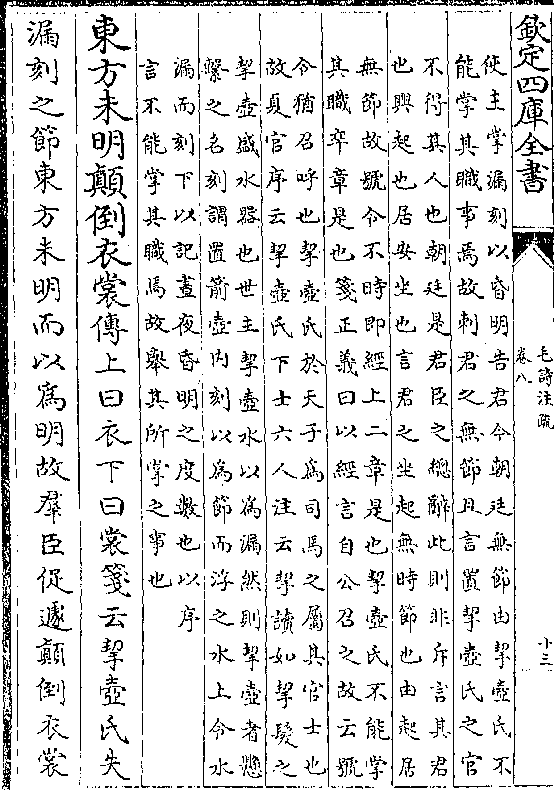 欽定四庫全書
毛詩注疏
卷八
十三
使主掌漏刻以昏明告君今朝廷無節由挈壺氏不
能掌其職事焉故刺君之無節且言置挈壺氏之官
不得其人也朝廷是君臣之緫辭此則非斥言其君
也興起也居安坐也言君之坐起無時節也由起居
無節故號令不時即經上二章是也挈壺氏不能掌
其職卒章是也箋正義曰以經言自公召之故云號
令猶召呼也挈壺氏於天子為司馬之屬其官士也
故夏官序云挈壺氏下士六人注云挈讀如挈髮之
挈壺盛水器也世主挈壺水以為漏然則挈壺者懸
繫之名刻謂置箭壺内刻以為節而浮之水上令水
漏而刻下以記晝夜昏明之度數也以序
言不能掌其職焉故舉其所掌之事也
東方未明顛倒衣裳傳上曰衣下曰裳箋云挈壺氏失
漏刻之節東方未明而以為明故羣臣促遽顛倒衣裳